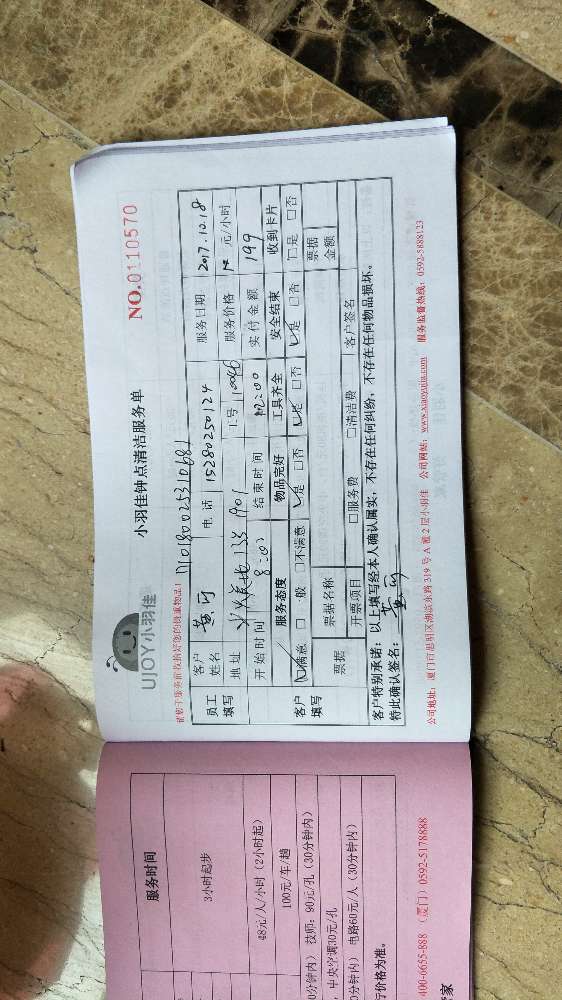 UJOY小羽佳
小羽佳钟点清洁服务单
NO.0110570
请您于服务前收拾好您的贵重物品!
M0180025310681
员工填写
客户姓名 黄 电话 15280250124 服务日期 2017.10.18
地址 138 1901 工号 110046 服务价格 元/小时
开始时间 8:00 结束时间 12:00 实付金额 199
客户填写
服务态度 物品完好 工具齐全 安全结束 收到卡片
☑满意 □一般 □不满意 ☑是 □否 ☑是 □否 ☑是 □否 □是 □否
票据 票据名称 票据金额
开票项目 □服务费 □清洁费 客户签名
客户特别承诺:以上填写经本人确认属实,不存在任何纠纷,不存在任何物品损坏。
特此确认签名: 黄
公司地址:厦门市思明区湖滨东路319号A座2层小羽佳 公司网站:www.xiaoyujia.com 服务监督热线:0592-5888123
服务时间
3小时起步
48元/人/小时(2小时起)
100元/车/趟
0分钟内) 技师:90元/孔(30分钟内)
,中央空调30元/孔
0分钟内) 电路60元/人(30分钟内)
行价格为准。
400-0655-888 (厦门) 0592-5178888
管家